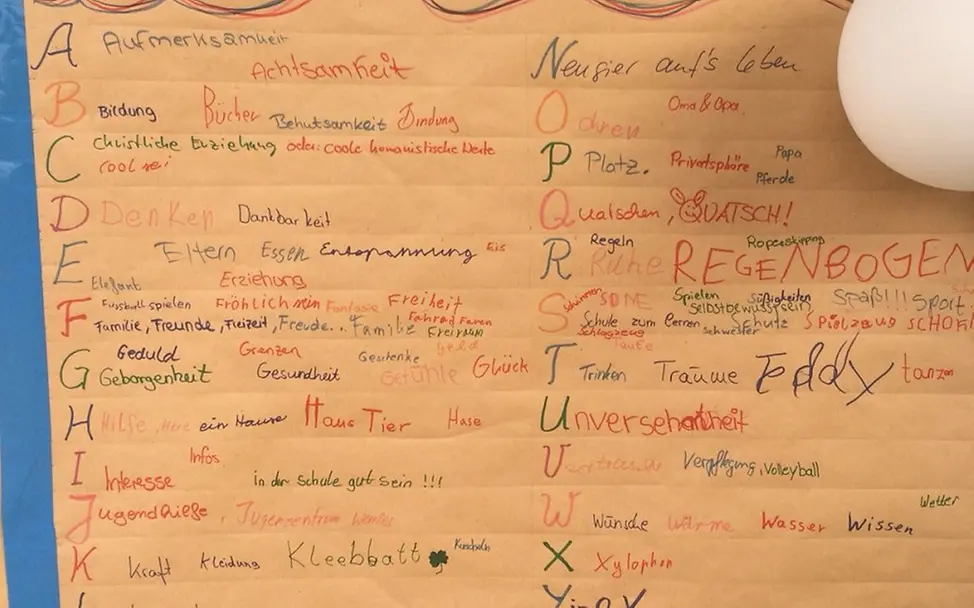 A Aufmerksamkeit
Achtsamkeit
B Bildung Bücher Behutsamkeit Bindung
C Christliche Erziehung oder: coole humanistische Werte
cool sei
D Denken Dankbarkeit
E Eltern Essen Entspannung Eis
Elefant Erziehung
F Fussball spielen Fröhlich sein Fantasie Freiheit
Familie, Freunde, Freizeit, Freude... Familie Fahrad Faren
Freiraum
G Geduld Grenzen Geschenke Geld
Geborgenheit Gesundheit Gefühle Glück
H Hilfe, ein Hause Haus Tier Hase
I Infos
Interesse in der Schule gut sein !!!
Jugendhilfe, Jugenzentrum
K Kraft Kleidung Kleebbatt Kuscheln
Neugier auf's Leben
O Oma & Opa
Ohren
P Platz. Privatsphäre Papa
Pferde
Quatschen, QUATSCH!
R Regeln Ruhe REGENBOGEN Ropeskipping
S Schwimmen SONE Spielen Süßigkeiten Spaß!!! Sport
SELBSTBEWUSSTSEIN
Schule zum Lernen Schwester Schutz Spielzeug SCHOK
Schlagzeug
T Taufe
Trinken Träume Eddy tanzen
Unversehrtheit
Vertrauen Verpflegung, Volleyball
W Wünsche Wärme Wasser Wissen Wetter
X Xylophon